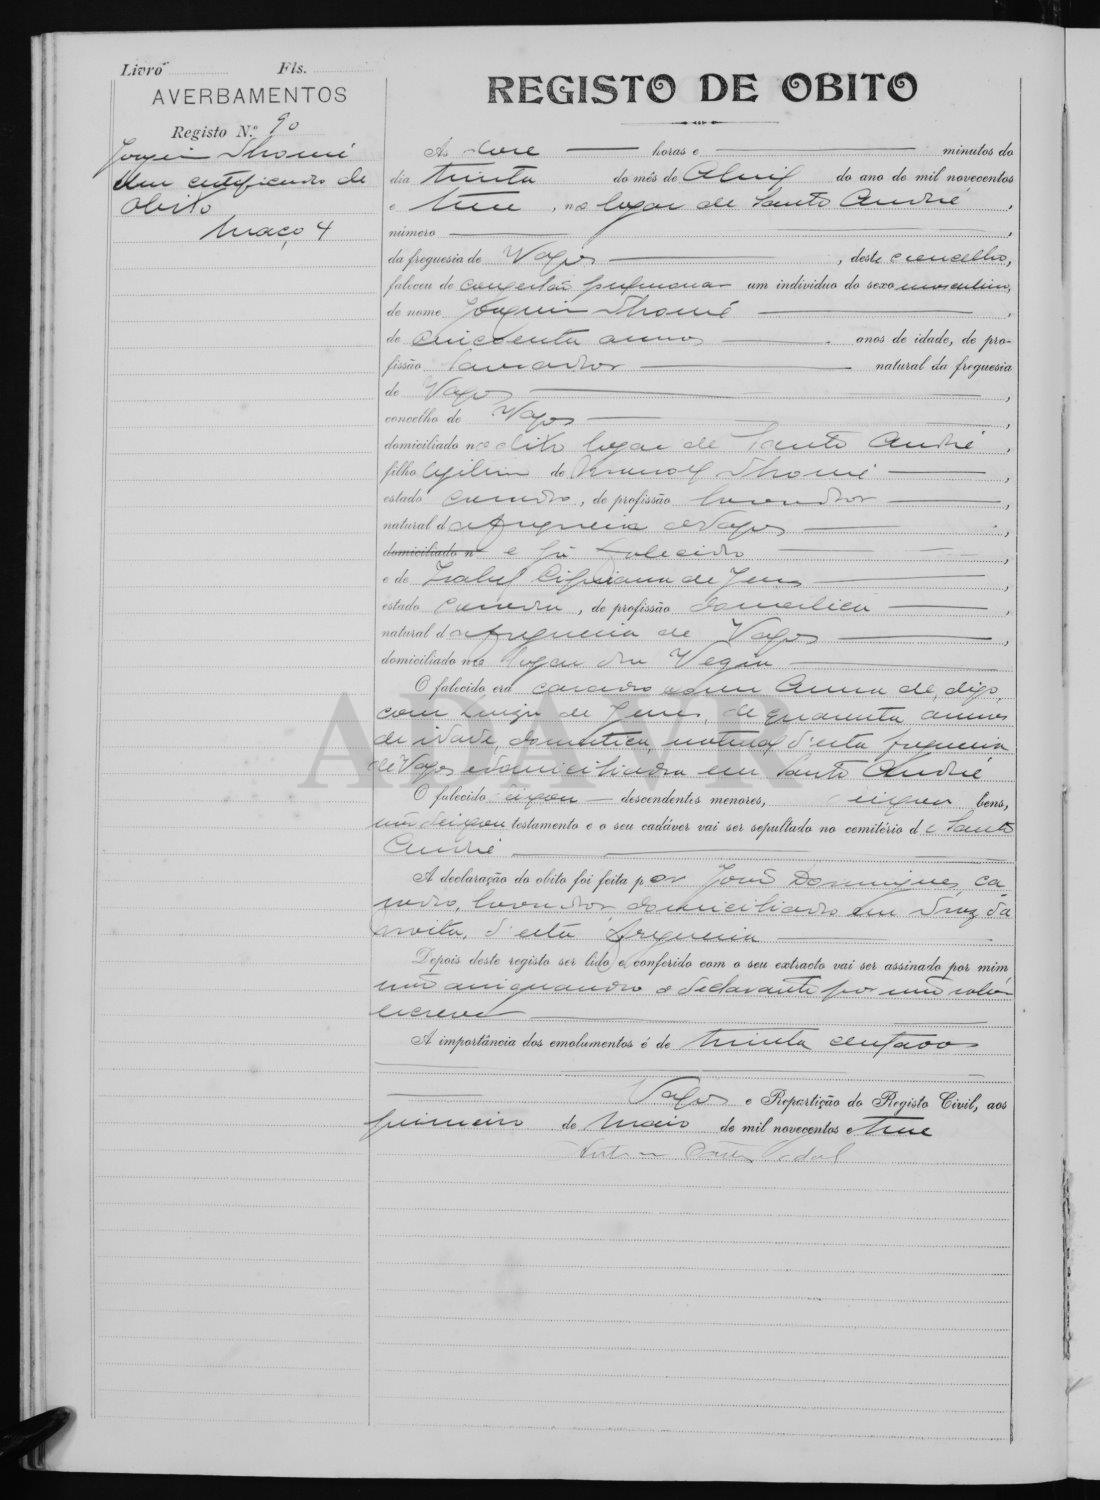 Livro Fls.
AVERBAMENTOS
Registo N.º 90
Joaquim Thomé
Um certificado de
obito
Maço 4
REGISTO DE OBITO
Ás doze horas e minutos do
dia trinta do mês de Abril do ano de mil novecentos
e treze, no logar de Santo André,
número
da freguesia de Vagos, deste concelho,
faleceu de congestão pulmonar um individuo do sexo masculino,
de nome Joaquim Thomé,
de cincoenta annos anos de idade, de pro-
fissão lavrador natural da freguesia
de Vagos,
concelho de Vagos,
domiciliado no dito logar de Santo André,
filho legitimo de Manoel Thomé,
estado casado, de profissão lavrador,
natural da freguesia de Vagos,
domiciliado n e já falecido,
e de Izabel Cipriana de Jesus,
estado casada, de profissão domestica,
natural da freguesia de Vagos,
domiciliado no logar da
O falecido era casado com Anna de, digo,
com Luiza de Jesus, de quarenta annos
de idade, domestica, natural d'esta freguesia
de Vagos e domiciliada em Santo André
O falecido deixou descendentes menores, deixou bens,
não deixou testamento e o seu cadáver vai ser sepultado no cemitério de Santo
André
A declaração do obito foi feita por José Domingues, ca-
sado, lavrador domiciliado em da
, d'esta freguesia
Depois deste registo ser lido e conferido com o seu extracto vai ser assinado por mim,
não assignando o declarante por não saber
escrever
A importância dos emolumentos é de trinta centavos
Vagos e Repartição do Registo Civil, aos
primeiro de Maio de mil novecentos e treze
ADAVR